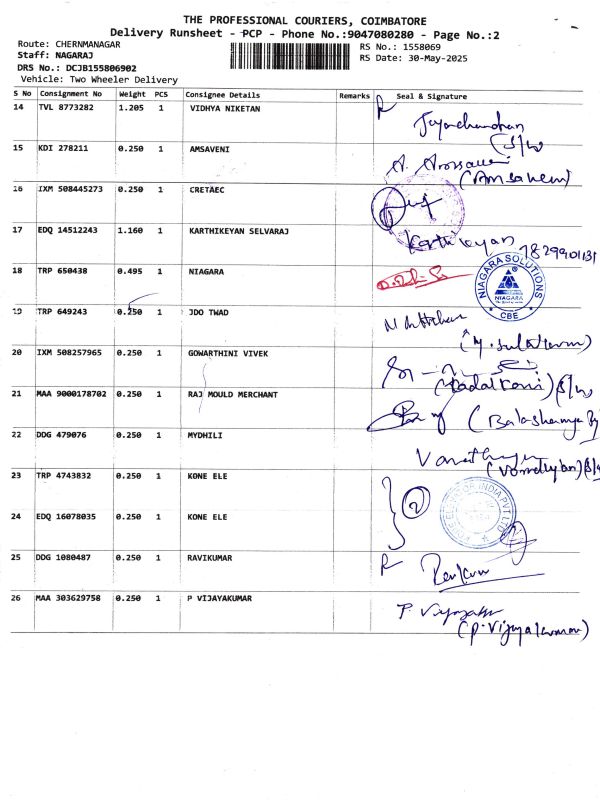 THE PROFESSIONAL COURIERS, COIMBATORE
Delivery Runsheet - PCP - Phone No.:9047080280 - Page No.:2
Route: CHERNMANAGAR RS No.: 1558069
Staff: NAGARAJ RS Date: 30-May-2025
DRS No.: DCJB155806902
Vehicle: Two Wheeler Delivery
S No Consignment No Weight PCS Consignee Details Remarks Seal & Signature
14 TVL 8773282 1.205 1 VIDHYA NIKETAN
Jayachandran
(S/W
15 KDI 278211 0.250 1 AMSAVENI
(Amsaveni)
16 IXM 508445273 0.250 1 CRETAEC
17 EDQ 14512243 1.160 1 KARTHIKEYAN SELVARAJ
Karthikeyan
18 TRP 650438 0.495 1 NIAGARA
NIAGARA SOLUTIONS
NIAGARA
CBE
19 TRP 649243 0.250 1 JDO TWAD
20 IXM 508257965 0.250 1 GOWARTHINI VIVEK
S/W
21 MAA 9000178702 0.250 1 RAJ MOULD MERCHANT
22 DDG 479076 0.250 1 MYDHILI
23 TRP 4743832 0.250 1 KONE ELE
2
24 EDQ 16078035 0.250 1 KONE ELE
25 DDG 1080487 0.250 1 RAVIKUMAR
26 MAA 303629758 0.250 1 P VIJAYAKUMAR
(P. Vijayakumar)